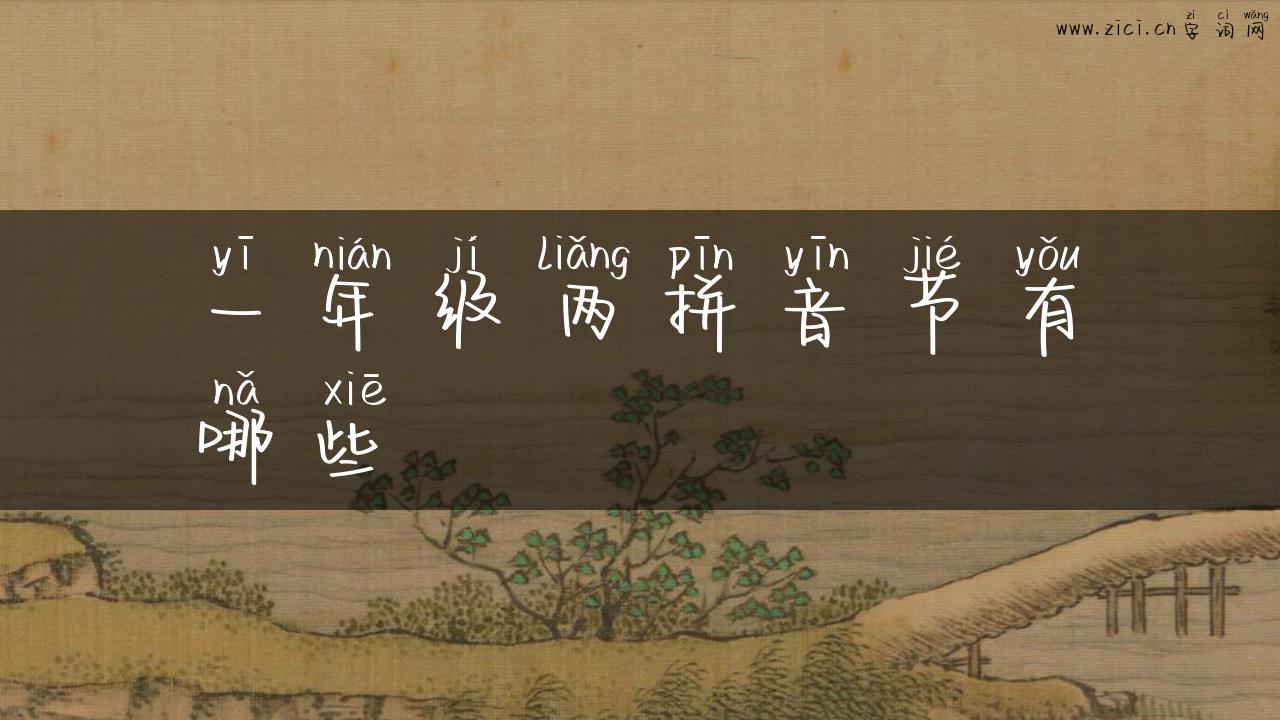 zì cí wǎng
www.zici.cn 字 词 网
yī nián jí liǎng pīn yīn jié yǒu
一 年 级 两 拼 音 节 有
nǎ xiē
哪 些